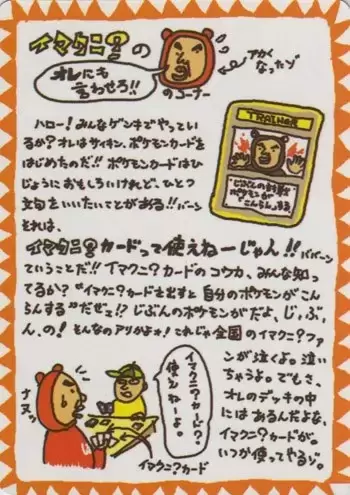 イマクニ?の
オレにも
言わせろ!!
のコーナー
アカく
なったゾ
TRAINER
じぶんの対戦
ポケモンが
こんらんする
ハロー!みんなゲンキでやってい
るか?オレはサイキン、ポケモンカードを
はじめたのだ!!ポケモンカードはひ
じょうにおもしろいけれど、ひとつ
文句をいいたいことがある!!バーン
それは、
イマクニ?カードって使えねーじゃん!!ババーン
ていうことだ!!イマクニ?カードのコウカ、みんな知っ
てるか?"イマクニ?カードを出すと自分のポケモンがこん
らんする"だぜェ!?じぶんのポケモンがだよ、じ、ぶ、
ん、の!そんなのアリかよォ!これじゃ全国のイマクニ?ファ
ンが泣くよ。泣い
ちゃうよ。でもさ、
オレのデッキの中
にはあるんだよな、
イマクニ?カードが。
いつか使ってやるゾ。
イマクニ?カード?
使えねーよ。
ナヌッ
イマクニ?カード